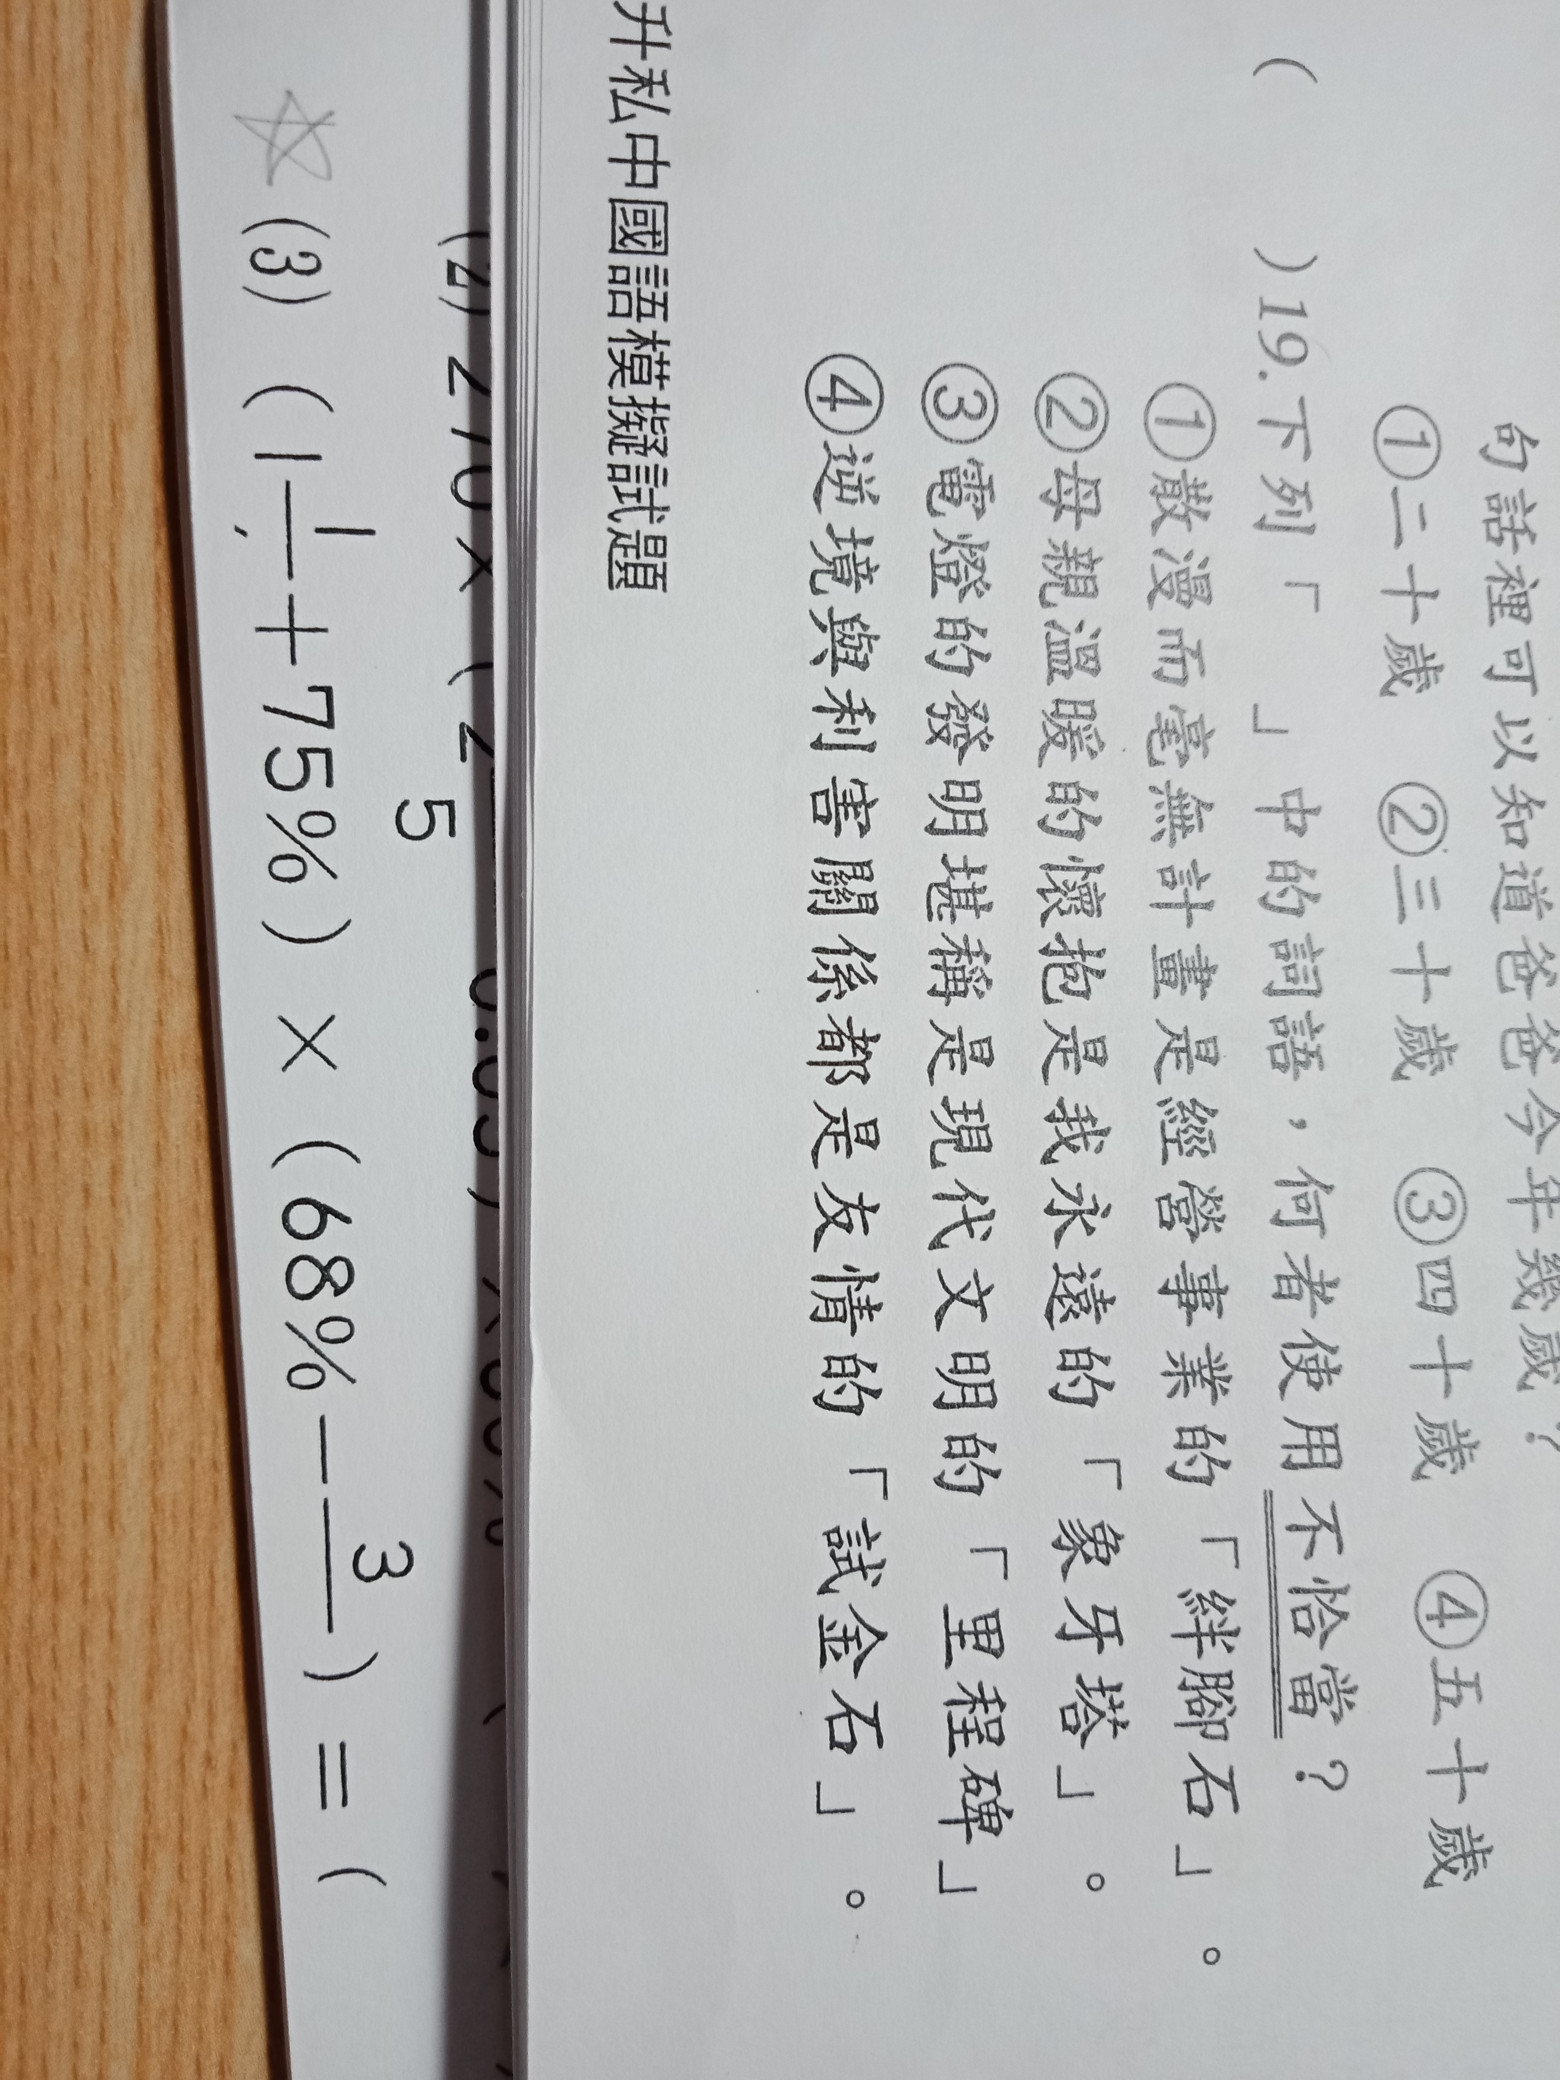 句話裡可以知道爸爸今年幾歲？
①二十歲 ②三十歲 ③四十歲 ④五十歲
( )19.下列「 」中的詞語，何者使用不恰當？
①散漫而毫無計畫是經營事業的「絆腳石」。
②母親溫暖的懷抱是我永遠的「象牙塔」。
③電燈的發明堪稱是現代文明的「里程碑」
④逆境與利害關係都是友情的「試金石」。
升私中國語模擬試題
5
(3) (1 1 + 75%) × (68% − 3 ) = (